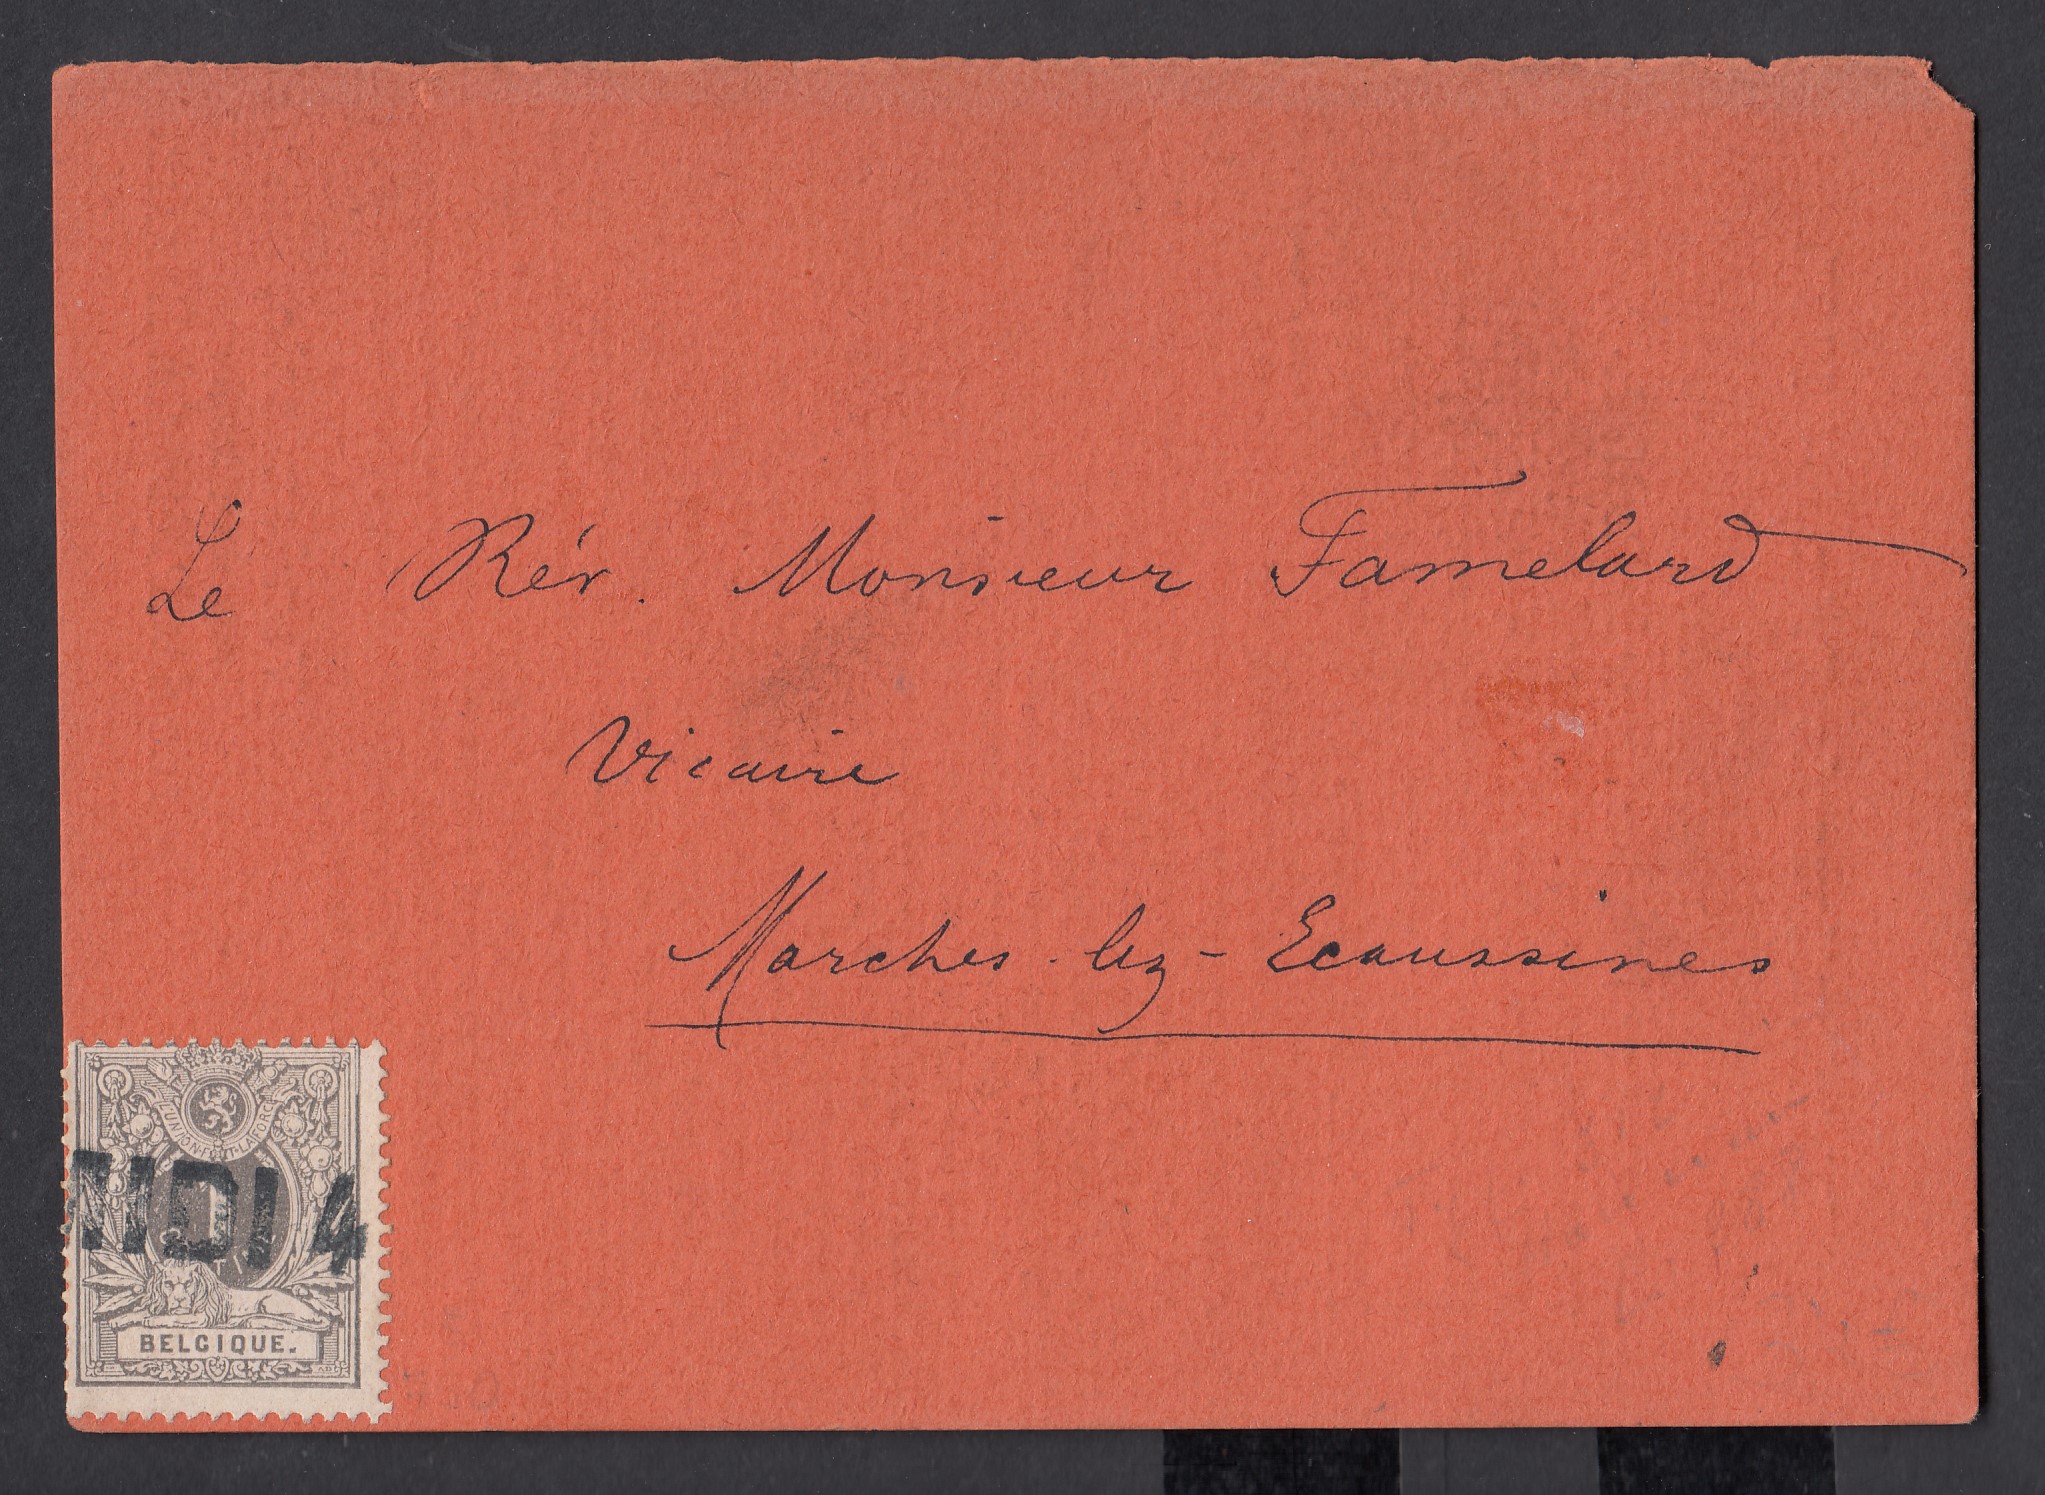 Le Rév. Monsieur Famelard
Vicaire
Marches-lez-Ecaussines
L'UNION FAIT LA FORCE
NDI 4
BELGIQUE.